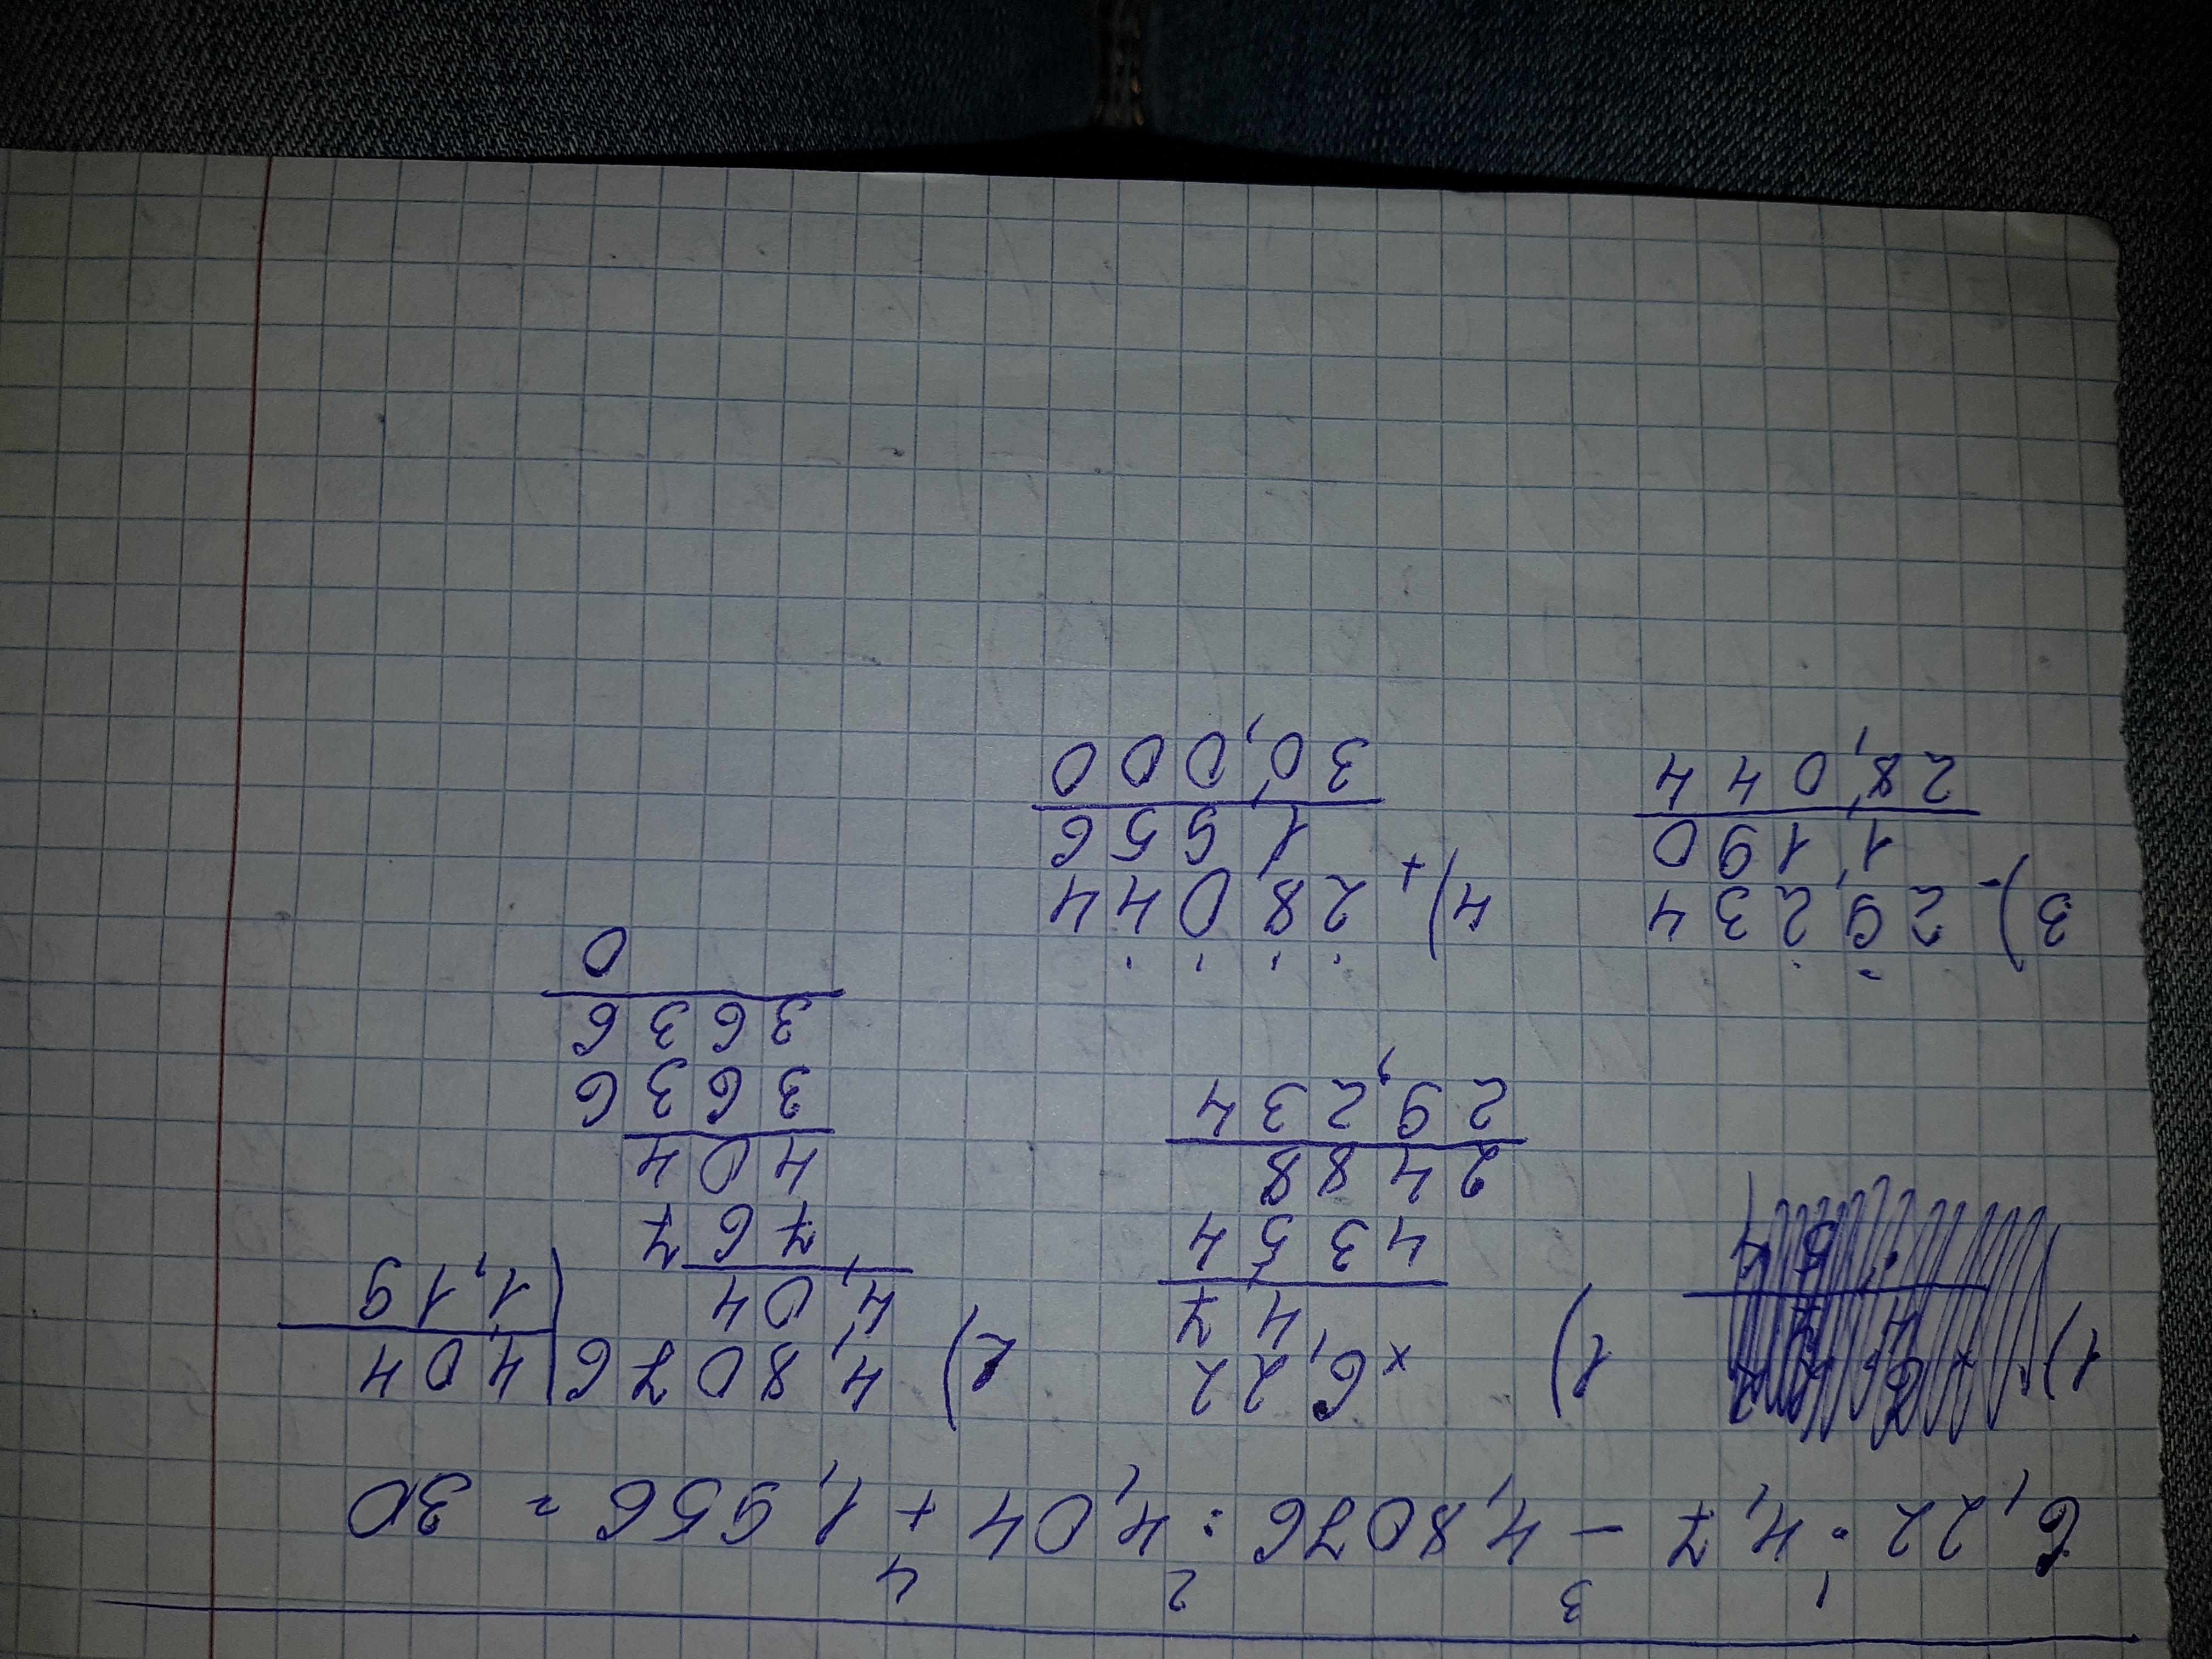 1 3 2 4
6,22 · 4,7 - 4,8076 : 4,04 + 1,956 = 30
1) 1) × 6,22 2) 4,8076 | 4,04
4,7 4,04 1,19
4354 767
2488 404
29,234 3636
3636
0
3) - 29,234 4) + 28,044
1,190 1,956
28,044 30,000